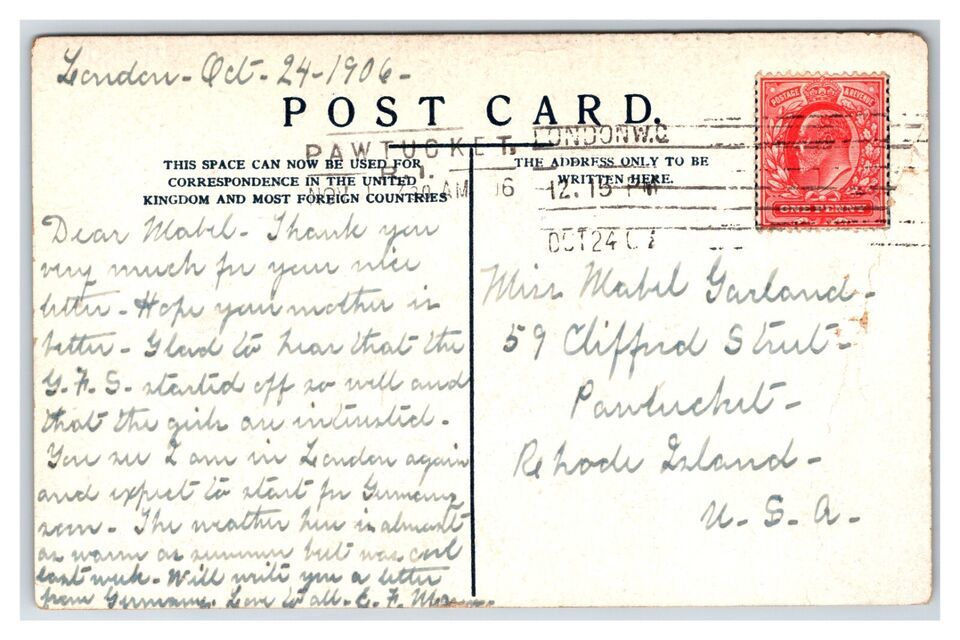 London - Oct - 24 - 1906 -
POST CARD.
PAWTUCKET,
R.I.
NOV 730 AM 06
LONDON W.C
12.15 PM
OCT 24 0
THIS SPACE CAN NOW BE USED FOR
CORRESPONDENCE IN THE UNITED
KINGDOM AND MOST FOREIGN COUNTRIES
THE ADDRESS ONLY TO BE
WRITTEN HERE.
POSTAGE & REVENUE
ONE PENNY
Dear Mabel - Thank you
very much for your nice
letter - Hope your mother is
better - Glad to hear that the
G. F. S. started off so well and
that the girls are interested -
You see I am in London again
and expect to start for Germany
soon - The weather here is almost
as warm as summer but was cool
last week - Will write you a letter
from Germany. Love to all - E. F.
Miss Mabel Garland -
59 Clifford Street -
Pawtucket -
Rhode Island -
U - S - A -